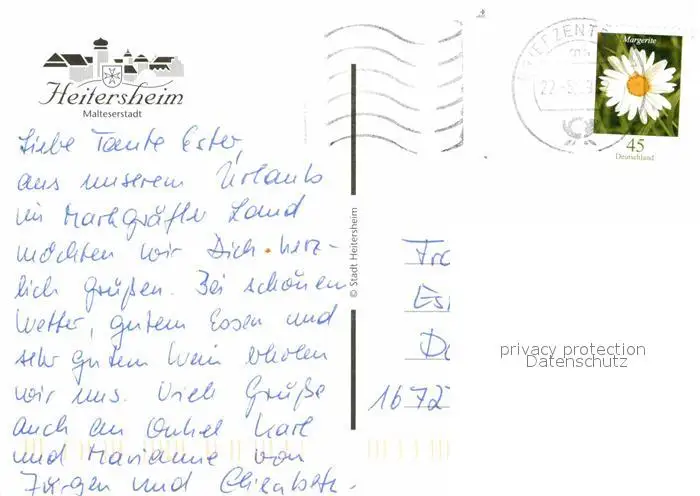 Heitersheim
Malteserstadt
Liebe Tante Ester,
aus unserem Urlaub
im Markgräfler Land
möchten wir Dich herz-
lich grüßen. Bei schönem
Wetter, gutem Essen und
sehr gutem Wein erholen
wir uns. Viele Grüße
auch an Onkel Karl
und Marianne von
Jürgen und Elisabeth.
© Stadt Heitersheim
BRIEFZENT
Margerite
45
Deutschland
Frc
Es
D
1672
privacy protection
Datenschutz